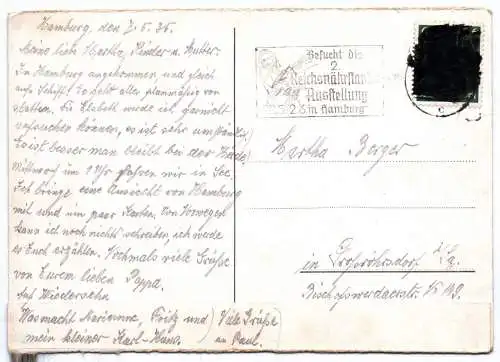 Hamburg, den 7.5.35.
Meine liebe Martha, Kinder u. Mutter.
In Hamburg angekommen und gleich
auf Schiff. Es geht alles planmäßig von
statten. Die Elsbeth werde ich garnicht
besuchen können, es ist sehr umständl.
Es ist besser man bleibt bei der Herde.
Mittwoch um 1 Uhr fahren wir in See.
Ich bringe eine Ansicht von Hamburg
mit und ein paar Karten. Von Norwegen
kann ich noch nichts schreiben, ich werde
es Euch erzählen. Nochmals viele Grüße
von Eurem lieben Pappa.
Auf Wiedersehn
Was macht Marianne, Fritz und
mein kleiner Karl-Hans.
Viele Grüße
an Paul.
Besucht die
2.
Reichsnährstands
Ausstellung
in Hamburg
Martha Berger
in Großröhrsdorf i/Sa.
Bischofswerdaerstr.